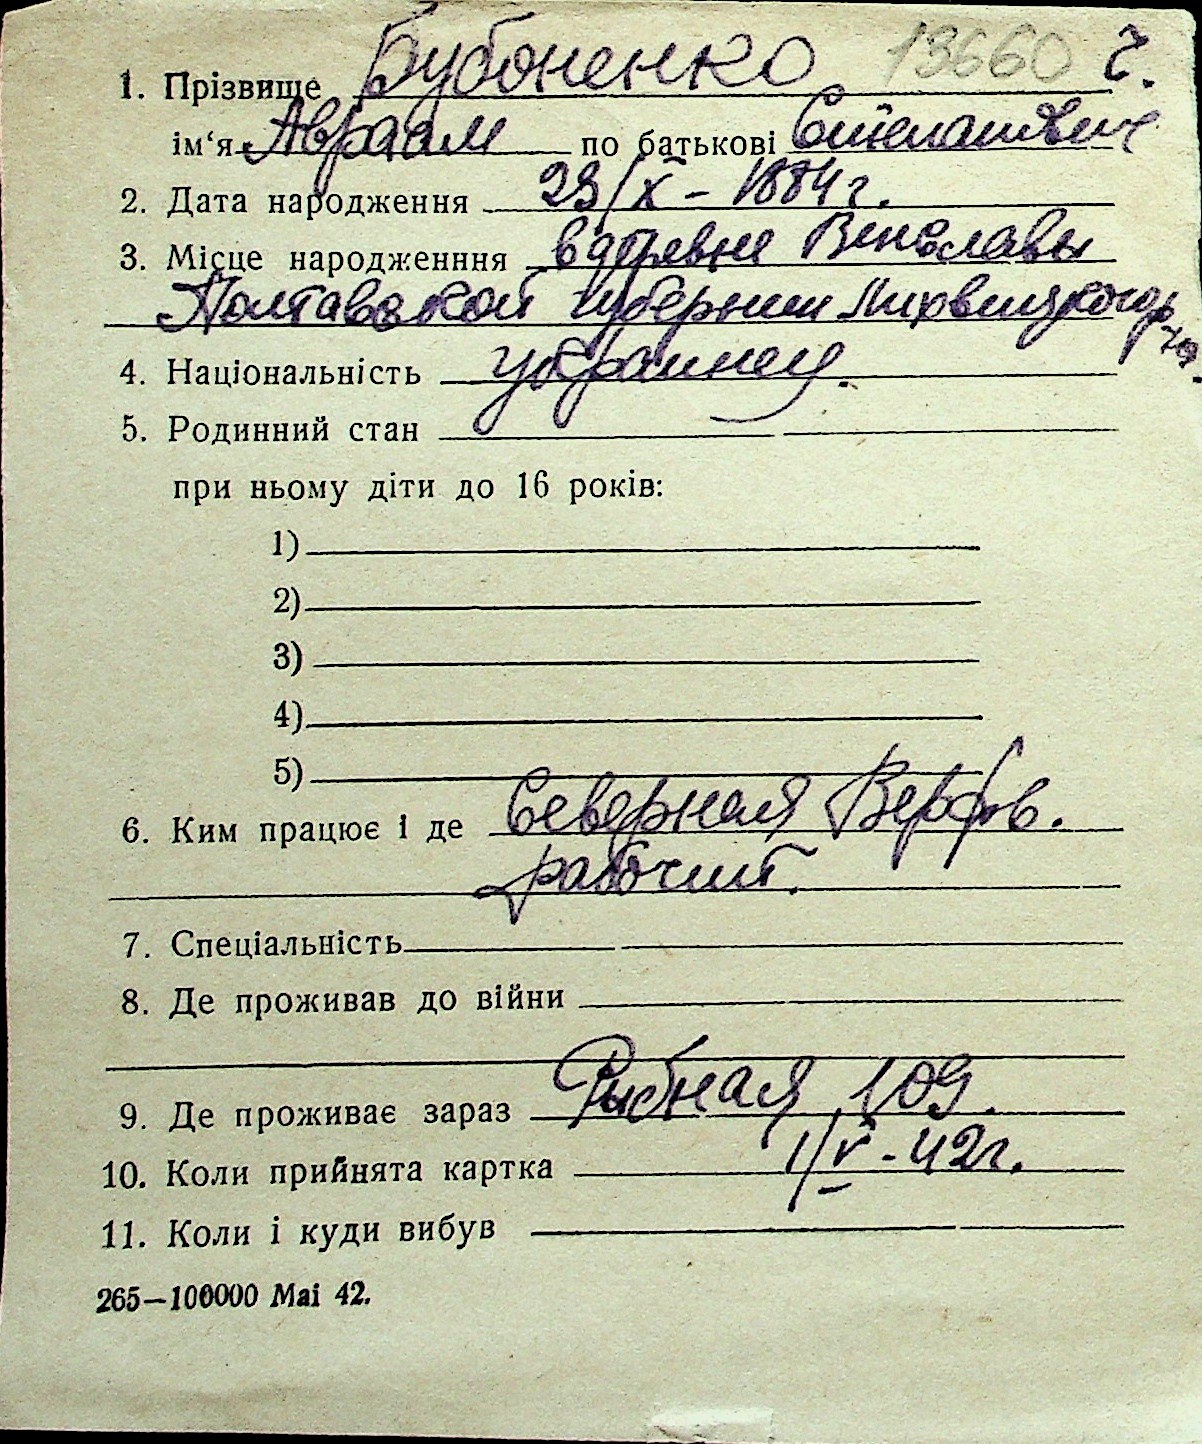 13660 г.
1. Прізвище Бубоненко
ім‘я Авраам по батькові
2. Дата народження 23/X – 1884 г.
3. Місце народженння в деревне
Полтавской губернии
4. Національність украинец.
5. Родинний стан
при ньому діти до 16 років:
1)
2)
3)
4)
5)
6. Ким працює і де Северная Верфь.
рабочий.
7. Спеціальність
8. Де проживав до війни
9. Де проживає зараз Рыбная 109.
10. Коли прийнята картка 1/V - 42г.
11. Коли і куди вибув
265—100000 Mai 42.